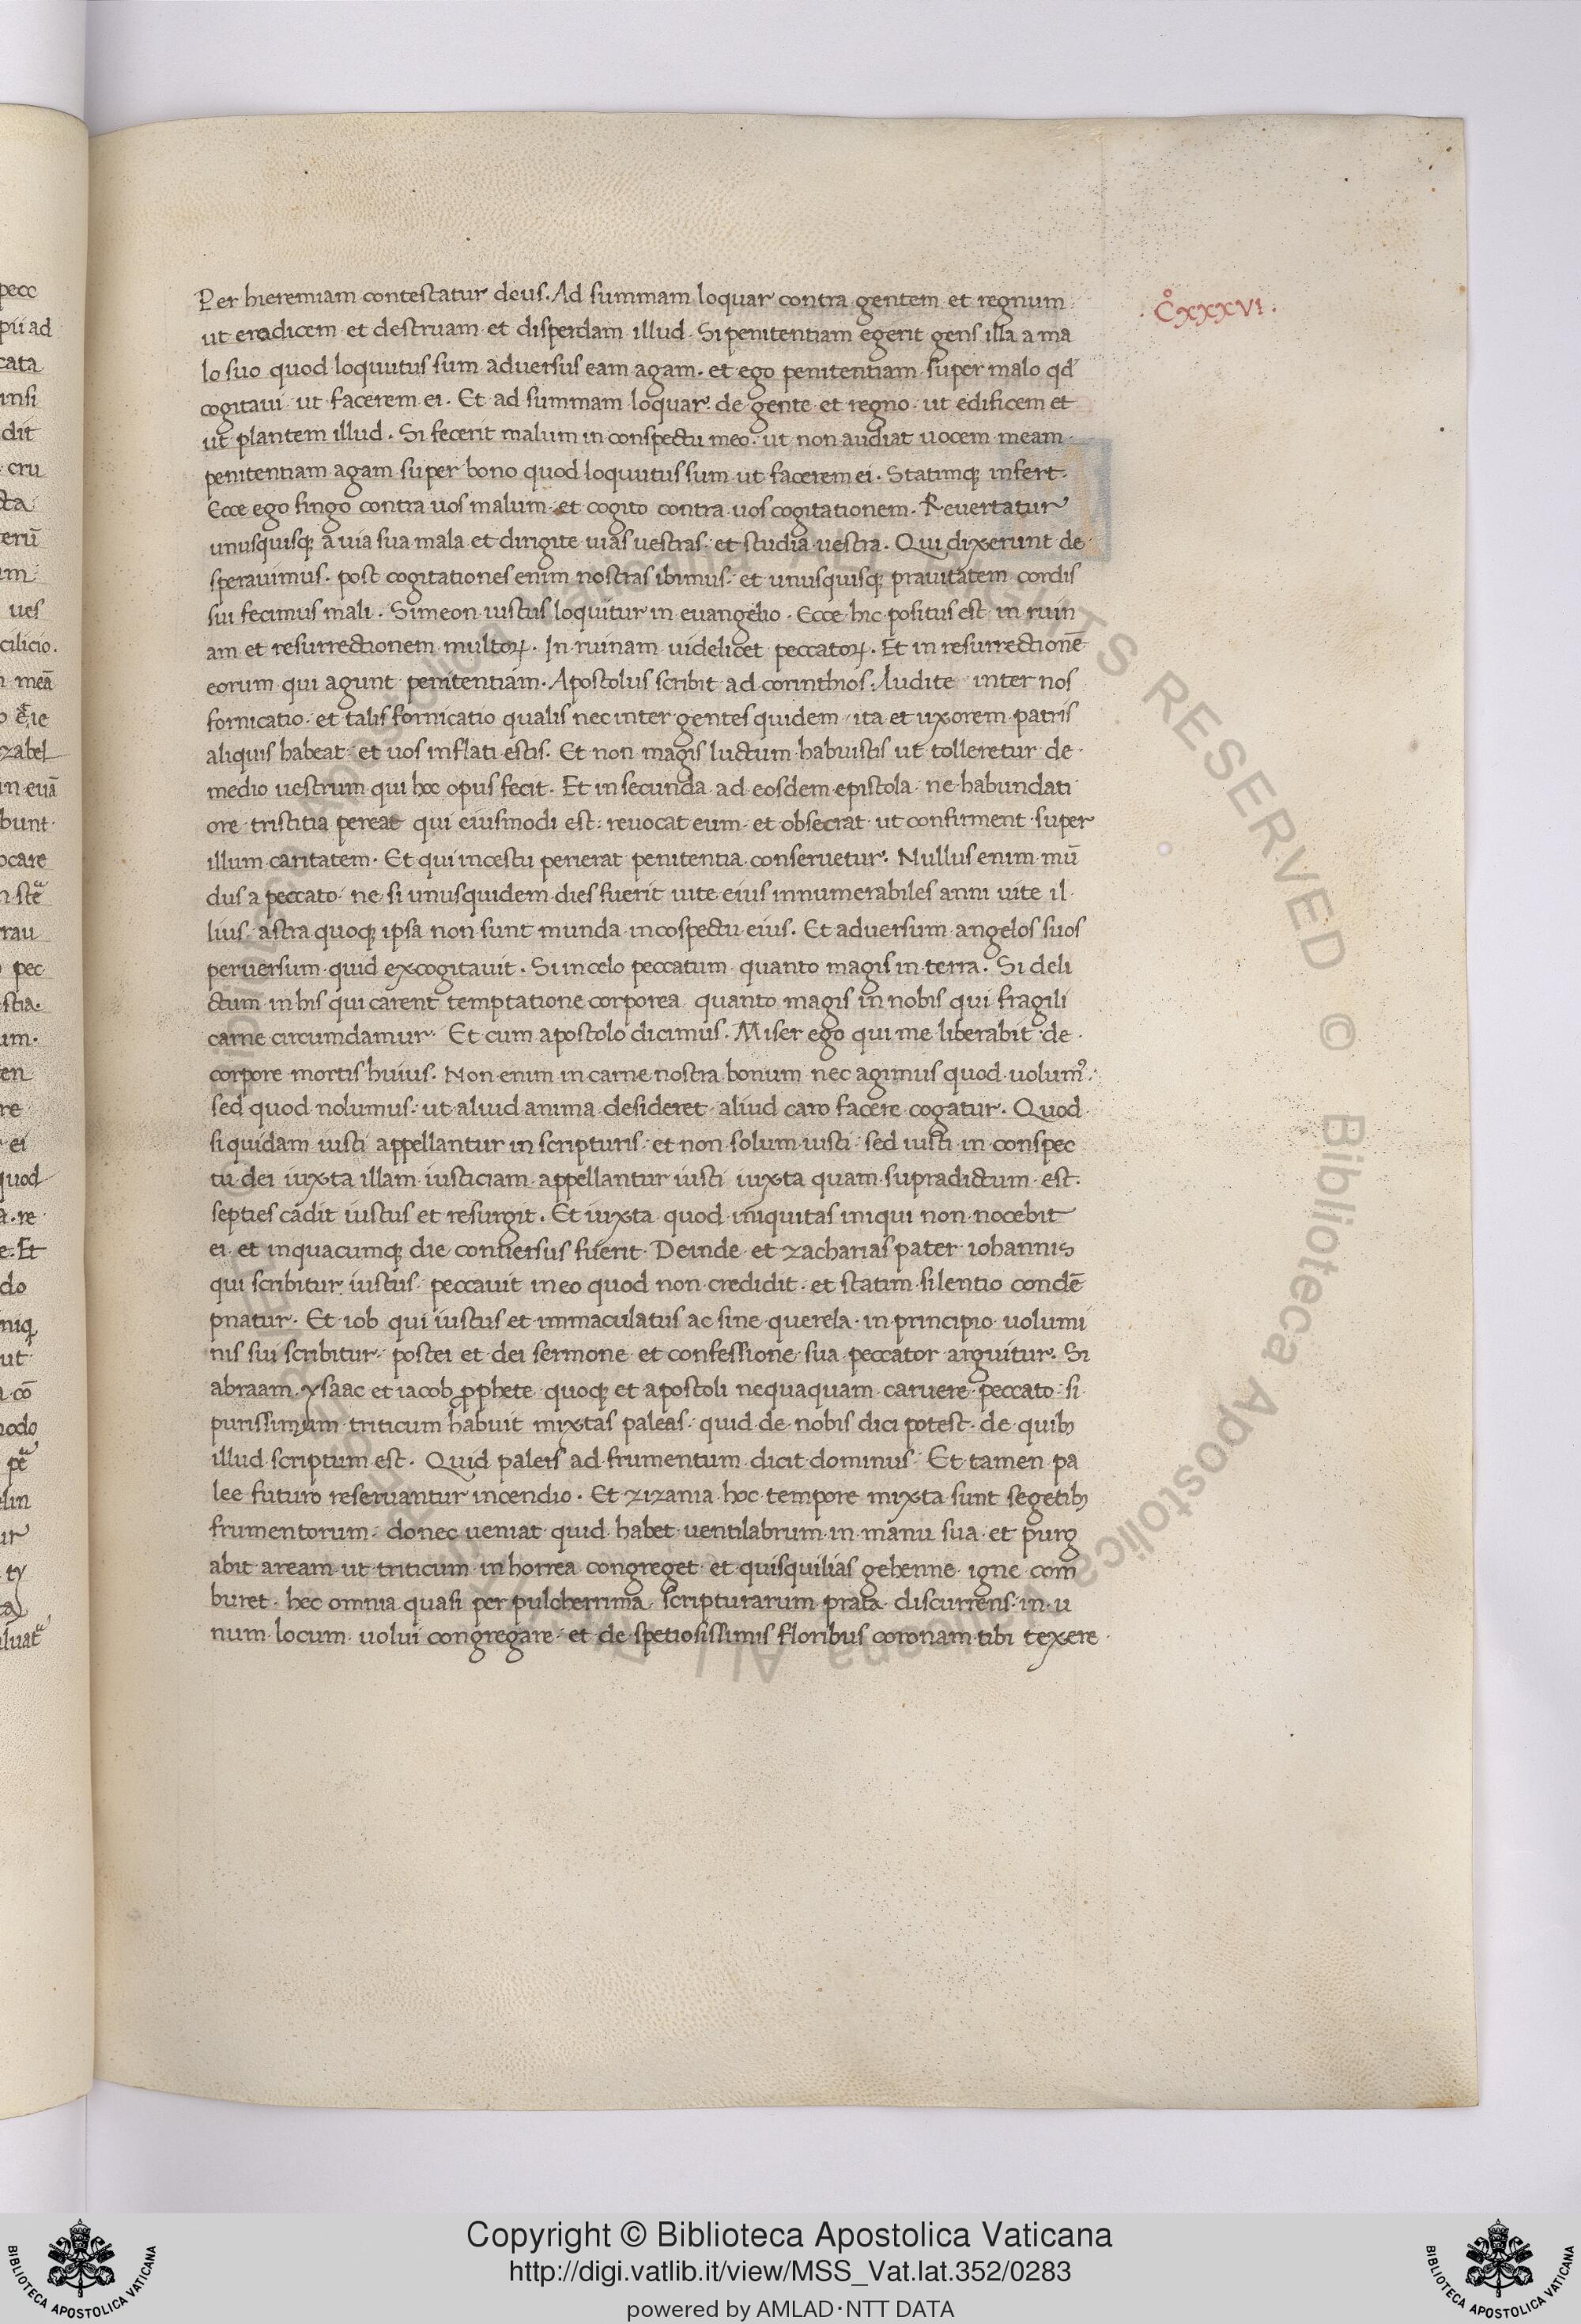 C̊XXXVI.
Per hieremiam contestatur deus. Ad summam loquar contra gentem et regnum
ut eradicem et destruam et disperdam illud. Si penitentiam egerit gens illa a ma
lo suo quod loquutus sum adversus eam agam. et ego penitentiam super malo qd̛
cogitaui ut facerem ei. Et ad summam loquar de gente et regno. ut edificem et
ut plantem illud. Si fecerit malum in conspectu meo. ut non audiat uocem meam
penitentiam agam super bono quod loquutus sum ut facerem ei. Statimq; infert.
Ecce ego fingo contra uos malum. et cogito contra uos cogitationem. Revertatur
unusquisq; a uia sua mala et dirigite uias uestras. et studia uestra. Qui dixerunt de
sperauimus. post cogitationes enim nostras ibimus. et unusquisq; prauitatem cordis
sui fecimus mali. Simeon iustus loquitur in euangelio. Ecce hic positus est in ruin
am et resurrectionem multoꝝ. In ruinam uidelicet peccatoꝝ. Et in resurrectionē
eorum qui agunt penitentiam. Apostolus scribit ad corinthios. Audite inter nos
fornicatio. et talis fornicatio qualis nec inter gentes quidem. ita et uxorem patris
aliquis habeat. et uos inflati estis. Et non magis luctum habuistis ut tolleretur de
medio uestrum qui hoc opus fecit. Et in secunda ad eosdem epistola ne habundati
ore tristitia pereat qui eiusmodi est. reuocat eum. et obsecrat ut confirment super
illum caritatem. Et qui incestu perierat penitentia conseruetur. Nullus enim mū
dus a peccato. ne si unusquidem dies fuerit uite eius innumerabiles anni uite il
lius. astra quoq; ipsa non sunt munda in cospectu eius. Et adversum angelos suos
peruersum quid excogitauit. Si in celo peccatum quanto magis in terra. Si deli
ctum in his qui carent temptatione corporea quanto magis in nobis qui fragili
carne circumdamur. Et cum apostolo dicimus. Miser ego qui me liberabit de
corpore mortis huius. Non enim in carne nostra bonum nec agimus quod uolumꝰ.
sed quod nolumus. ut aliud anima desideret. aliud caro facere cogatur. Quod
si quidam iusti appellantur in scripturis. et non solum iusti. sed iusti in conspec
tu dei iuxta illam iusticiam appellantur iusti iuxta quam supradictum est.
septies cadit iustus et resurgit. Et iuxta quod iniquitas iniqui non nocebit
ei. et in quacumq; die conuersus fuerit. Deinde et zacharias pater iohannis
qui scribitur iustus. peccauit in eo quod non credidit. et statim silentio condē
pnatur. Et iob qui iustus et immaculatus ac sine querela. in principio uolumi
nis sui scribitur. postei et dei sermone et confessione sua peccator arguitur. Si
abraam. ysaac et iacob ꝓphete quoq; et apostoli nequaquam caruere peccato. si
purissimum triticum habuit mixtas paleas. quid de nobis dici potest. de quibꝫ
illud scriptum est. Quid paleis ad frumentum dicit dominus. Et tamen pa
lee futuro reseruantur incendio. Et zizania hoc tempore mixta sunt segetibꝫ
frumentorum. donec ueniat quid habet uentilabrum in manu sua. et purg
abit aream ut triticum in horrea congreget. et quisquilias gehenne igne com
buret. hec omnia quasi per pulcherrima scripturarum prata discurrens. in u
num locum uolui congregare. et de spetiosissimis floribus coronam tibi texere
Copyright © Biblioteca Apostolica Vaticana
http://digi.vatlib.it/view/MSS_Vat.lat.352/0283
powered by AMLAD·NTT DATA